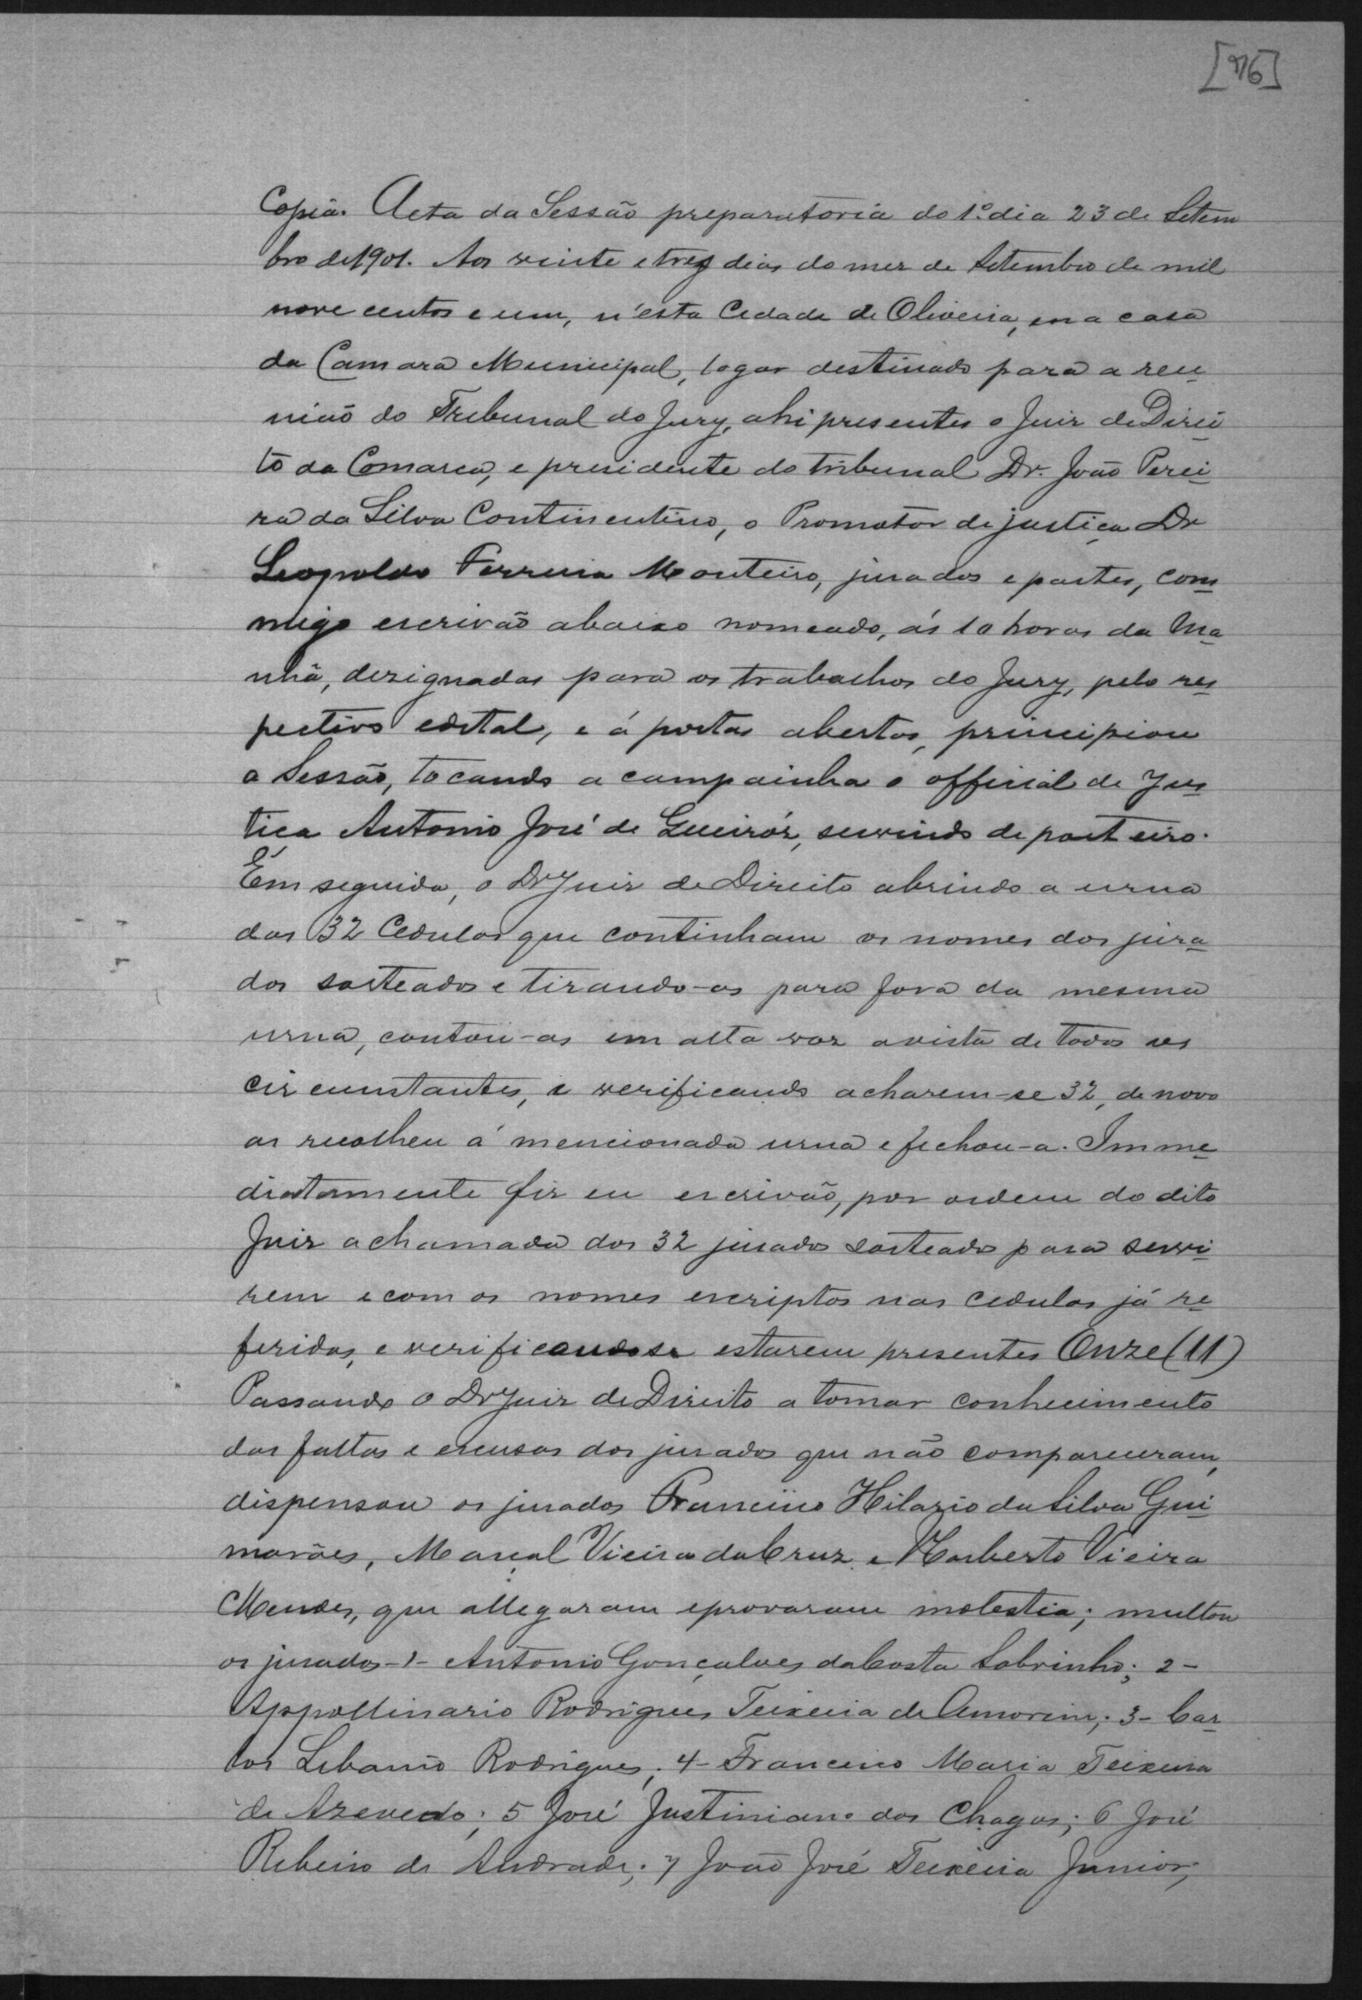 [76]
Copia. Acta da Sessão preparatoria do 1º dia 23 de Setem
bro de 1901. Aos vinte e tres dias do mez de Setembro de mil
nove centos e um, n'esta Cidade de Oliveira, em a casa
da Camara Municipal, logar destinado para a reu
nião do Tribunal do Jury, ahi presentes o Juiz de Direi
to da Comarca, e presidente do tribunal Dr. João Perei
ra da Silva Continentino, o Promotor de justiça Dr
Leopoldo Ferreira Monteiro, jurados e partes, com
migo escrivão abaixo nomeado, ás 10 horas da Ma
nhã, designadas para os trabalhos do Jury, pelo res
pectivo edital, e á portas abertas, principiou
a Sessão, tocando a campainha o official de Jus
tiça Antonio José de Queiróz, servindo de porteiro.
Em seguida, o Dr Juiz de Direito abrindo a urna
das 32 Cedulas que continham os nomes dos jura
dos sorteados e tirando-as para fora da mesma
urna, contou-as em alta voz a vista de todos os
circunstantes, e verificando acharem-se 32, de novo
as recolheu á mencionada urna e fechou-a. Imme
diatamente fiz eu escrivão, por ordem do dito
Juiz a chamada dos 32 jurados sorteados para servi
rem e com os nomes escriptos nas cedulas já re
feridas, e verificando se estarem presentes Onze (11)
Passando o Dr Juiz de Direito a tomar conhecimento
das faltas e escusas dos jurados que não compareceram,
dispensou os jurados Francisco Hilario da Silva Gui
marães, Marçal Vieira da Cruz e Norberto Vieira
Mendes, que allegaram e provaram molestia; multou
os jurados -1- Antonio Gonçalves da Costa Sobrinho; 2-
Appollinario Rodrigues Teixeira de Amorim; 3- Car
los Libanio Rodrigues; 4- Francisco Maria Teixeira
de Azevedo; 5 José Justiniano das Chagas; 6 José
Ribeiro de Andrade; 7 João José Teixeira Junior;